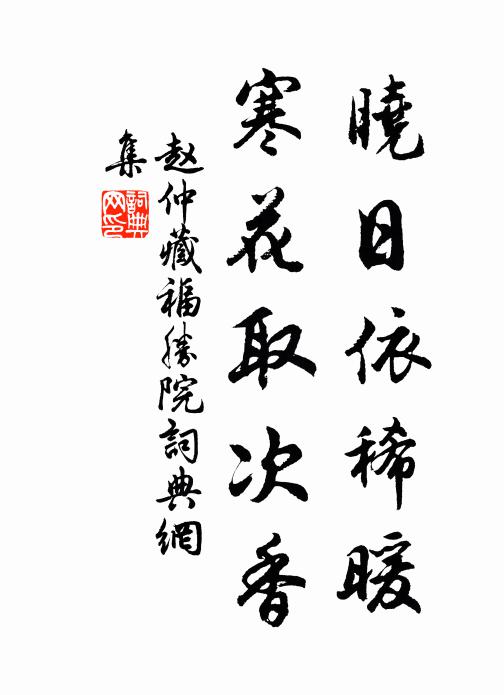 曉日依稀暖
寒花取次香
赵仲藏福勝院詞典網
集
詞典
网印